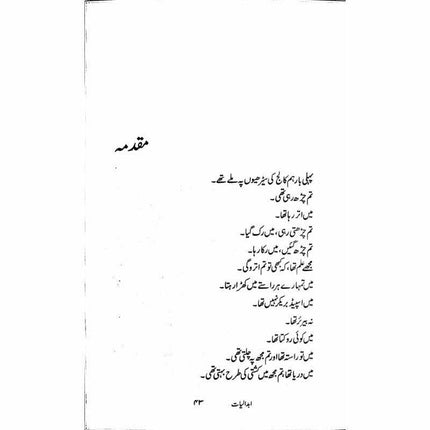 مقدمہ
پہلی بار ہم کالج کی سیڑھیوں پہ ملے تھے۔
تم چڑھ رہی تھی۔
میں اتر رہا تھا۔
تم چڑھتی رہی، میں رک گیا۔
تم چڑھ گئیں، میں رکا رہا۔
مجھے علم تھا، کہ کبھی تو تم اترو گی۔
میں تمہارے ہر راستے میں کھڑا رہتا۔
میں اسپیڈ بریکر نہیں تھا۔
نہ بیریئر تھا۔
میں کوئی روکتا تھا۔
میں تو راستہ تھا اور تم مجھ پہ چلتی تھی۔
میں دریا تھا، تم مجھ میں کشتی کی طرح بہتی تھی۔
ابدالیات ۴۳